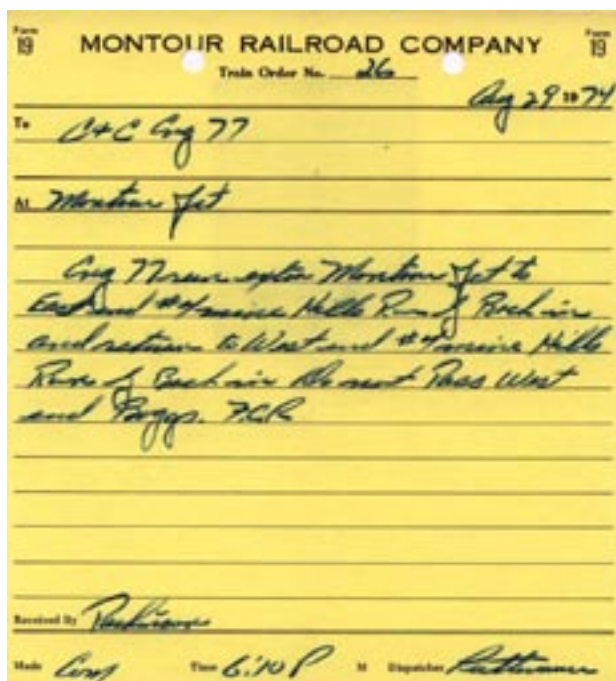 Form 19 MONTOUR RAILROAD COMPANY Form 19
Train Order No. 26
Aug 29 1974
To C+C Eng 77
At Montour Jct
Eng 77 run extra Montour Jct to
East end #4 mine Hills Run
and return to West end #4 mine Hills
Run Do not Pass West
end Boggs. F.C.R.
Received By
Made Com Time 6:10 P M Dispatcher